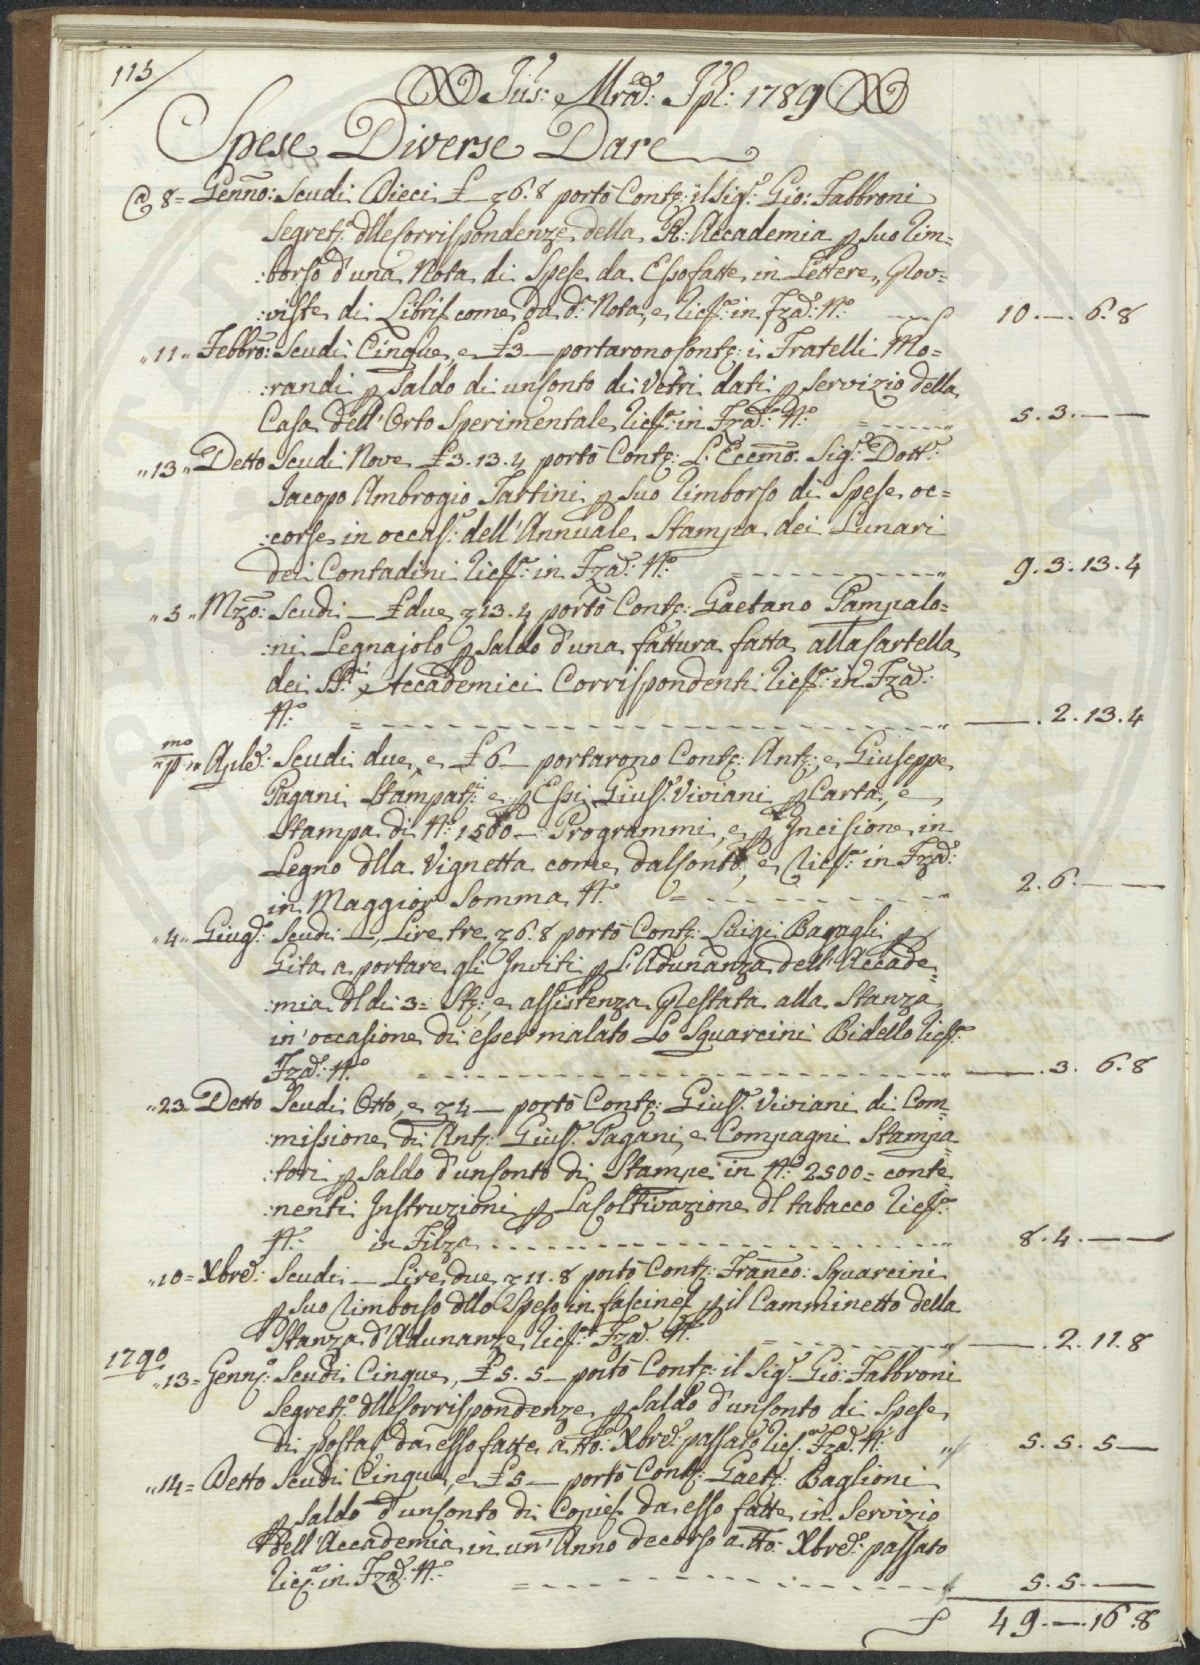 115
Jus: Mrad: Jpl: 1789
Spese Diverse Dare
@ 8= Genno: Scudi Dieci £ — 36.8 portò Contz: il Sig:r Gio: Fabbroni
Segret:o dlle Corrispondenze della R: Accademia p suo Rim=
:borso d'una Nota di Spese da Esso fatte in Lettere, Prov=
:viste di Libri come da d:a Nota, e Ric: in Fza: N:o 10. —. 6. 8
„11„ Febbro: Scudi Cinque, e £3 — portarono Contz: i Fratelli Mo=
:randi p Saldo di un Conto di Vetri dati p servizio della
Casa dell'Orto Sperimentale Ric: in Fza: N:o 5. 3. —
„13„ Detto Scudi Nove £3.13.4 portò Contz: L'Eccmo: Sig:r Dott:r
Jacopo Ambrogio Tartini p suo Rimborso di Spese oc=
:corse in occas: dell'Annuale Stampa dei Lunari
dei Contadini Ric: in Fza: N:o 9. 3. 13. 4
„5„ Mzo: Scudi — £ due 13.4 portò Contz: Gaetano Pampalo=
:ni Legnajolo p Saldo d'una fattura fatta alla Cartella
dei SS:ri Accademici Corrispondenti Ric: in Fza:
N:o —. 2. 13. 4
„pmo„ Aple: Scudi due, e £6 — portarono Contz: Ant:, e Giuseppe
Pagani Stampat:i e p Essi Gius: Viviani p Carta, e
Stampa di N:o 1500 — Programmi, e p Incisione in
Legno dlla Vignetta come dal Conto, e Ric: in Fza:
in Maggior Somma N:o 2. 6. —
„4„ Giug:o Scudi —, Lire tre 6.8 portò Contz: Luigi Bagagli p
Gita a portare gli Inviti p L'Adunanza dell'Accade=
:mia dl di 3= Stz: e assistenza Prestata alla Stanza
in occasione di esser malato Lo Squarcini Bidello Ric:
Fza: N:o —. 3. 6. 8
„23„ Detto Scudi Otto, e 4 — portò Contz: Gius: Viviani di Com=
:missione di Ant: Gius: Pagani, e Compagni Stampa=
:tori p Saldo d'un Conto di Stampe in N:o 2500= conte=
:nenti Instruzioni p La Coltivazione dl tabacco Ric:
N:o in Filza 8. 4. —
„10= Xbre: Scudi — Lire due 11.8 portò Contz: Franco: Squarcini
p suo Rimborso dllo Speso in fascine p il Camminetto della
Stanza d'Adunanze Ric: Fza: N:o —. 2. 11. 8
1790
„13= Genn:o Scudi Cinque, £5.5 — portò Contz: il Sig:r Gio: Fabbroni
Segret:o dlle Corrispondenze p Saldo d'un Conto di Spese
di posta da esso fatte a tto: Xbre: passato Ric: Fza: N:o 5. 5. 5 —
„14= Detto Scudi Cinque, e £5 — portò Contz: Gaet: Baglioni
p Saldo d'un Conto di Copie da esso fatte in Servizio
dell'Accademia in un'Anno decorso a tto: Xbre: passato
Ric: in Fza: N:o 5. 5. —
49. —. 16. 8